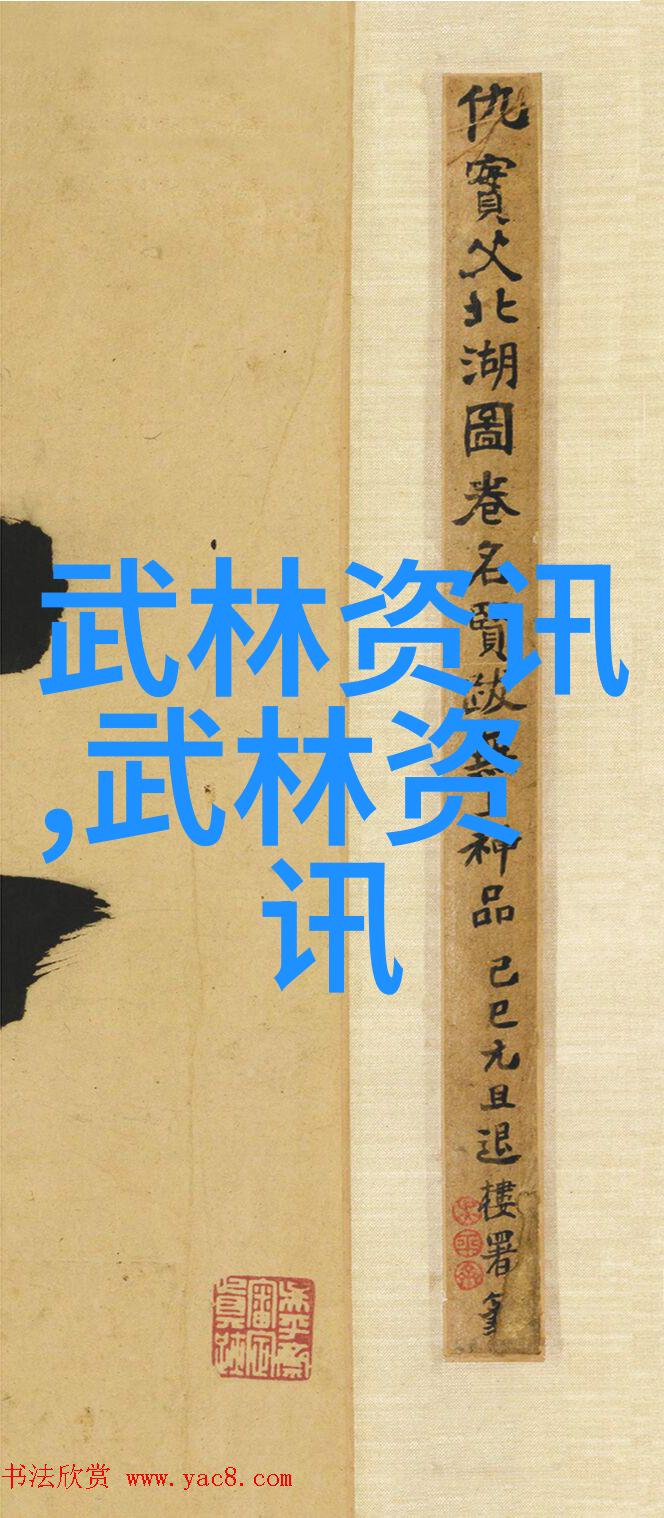 仇實父北湖圖卷名賢跋神品 己巳元旦退樓署
武林资讯
,武林资
讯
书法欣赏 www.yac8.com